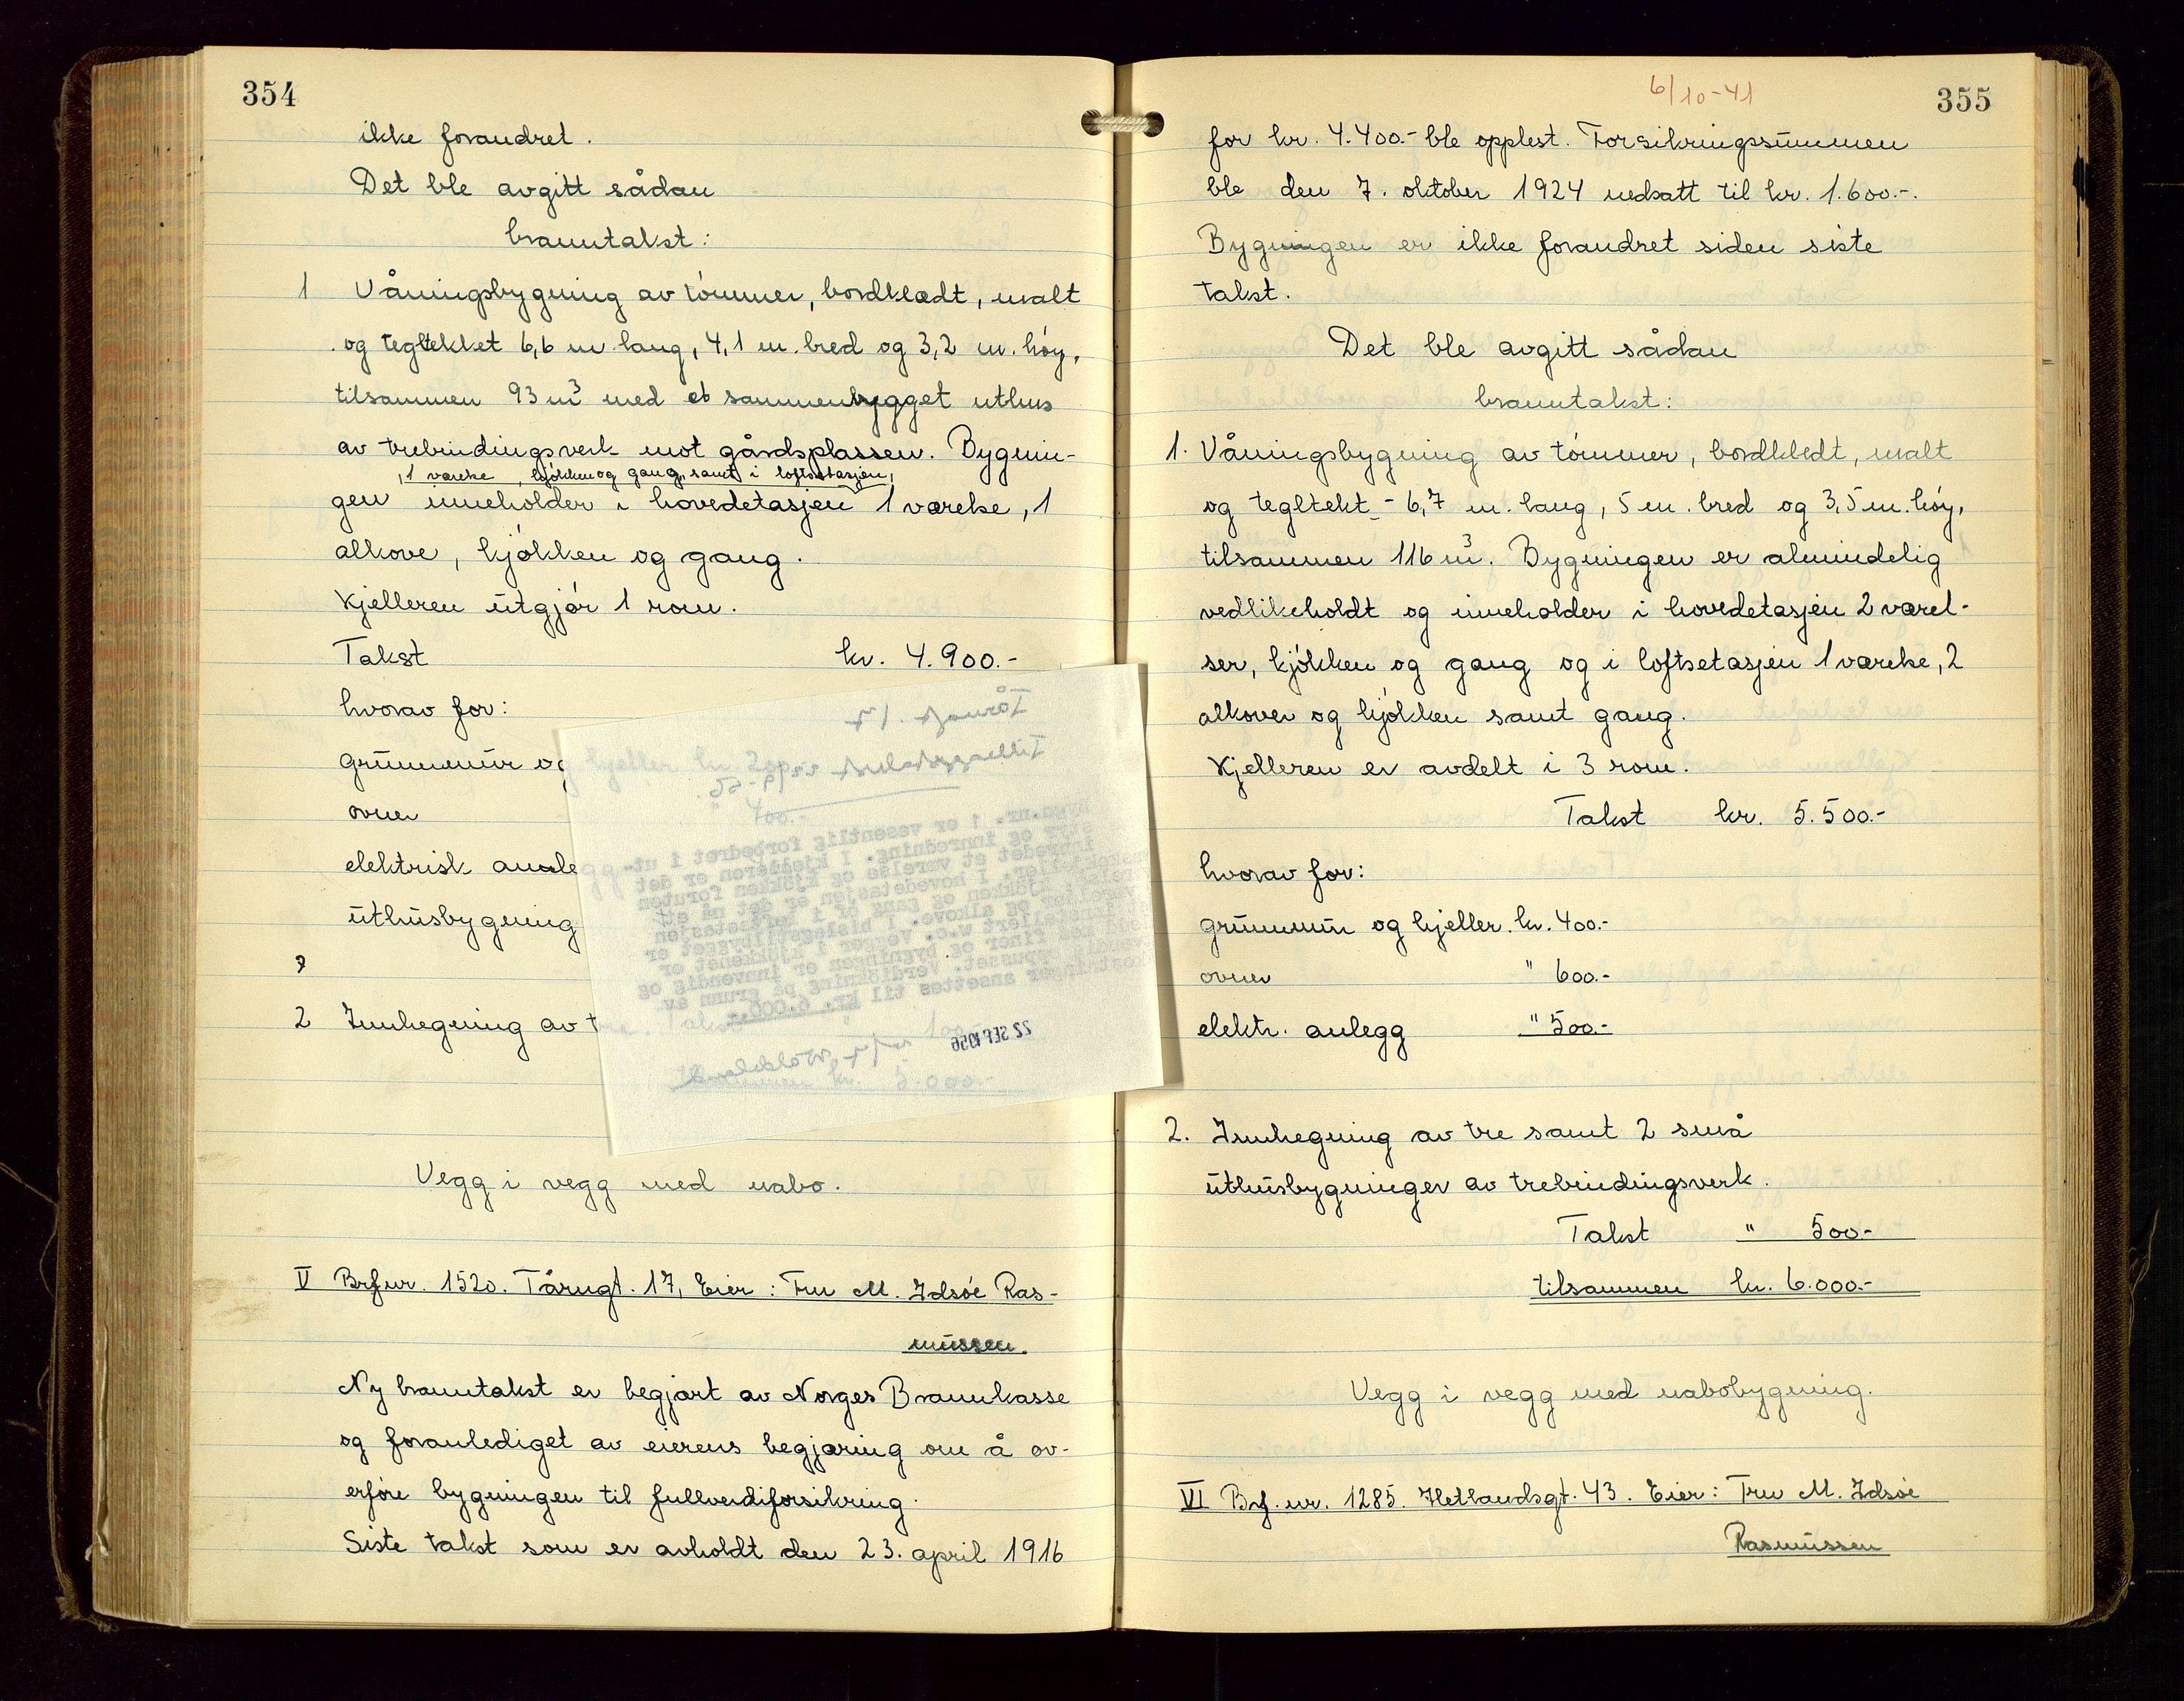 354
ikke forandret.
Det ble avgitt sådan
branntakst:
1 Våningsbygning av tömmer, bordklædt, malt
og tegltekket 6,6 m. lang, 4,1 m. bred og 3,2 m. höy,
tilsammen 93 m³ med et sammenbygget uthus
av trebindingsverk mot gårdsplassen. Bygnin-
, 1 værelse, kjökken og gang, samt i loftsetasjen,
gen inneholder i hovedetasjen 1 værelse, 1
alkove, kjökken og gang.
Kjelleren utgjör 1 rom.
Takst kr. 4.900.-
hvorav for:
grunnmur og kjeller kr.
ovner 400.-
elektrisk anle
uthusbygning
2
2 Innhegning av t
Tårngt. 17
Tilleggstakst
Bygn.nr. 1 er vesentlig forbedret i ut-
styr og innredning. I kjelleren er det
innredet et værelse og kjökken foruten
I hovedetasjen er det nå ett
kjökken og gang og i loftsetasjen
og alkove. I
w.c. Vegger i kjökkenet er
finer og bygningen er innvendig og
oppusset. Verdiökning på grunn av
kostninger ansettes til kr. 6.000.-
22 SEP. 1956
5.000.-
Vegg i vegg med nabo.
V Brf.nr. 1520. Tårngt. 17, Eier: Fru M. Idsöe Ras-
mussen.
Ny branntakst er begjært av Norges Brannkasse
og foranlediget av eierens begjæring om å ov-
erföre bygningen til fullverdiforsikring.
Siste takst som er avholdt den 23. april 1916
6/10-41
355
for kr. 4.400.- ble opplest. Forsikringssummen
ble den 7. oktober 1924 nedsatt til kr. 1.600.-.
Bygningen er ikke forandret siden siste
takst.
Det ble avgitt sådan
branntakst:
1. Våningsbygning av tömmer, bordkledt, malt
og tegltekt - 6,7 m. lang, 5 m. bred og 3,5 m. höy,
tilsammen 116 m³. Bygningen er almindelig
vedlikeholdt og inneholder i hovedetasjen 2 værel-
ser, kjökken og gang og i loftsetasjen 1 værelse, 2
alkover og kjökken samt gang.
Kjelleren er avdelt i 3 rom.
Takst kr. 5.500.-
hvorav for:
grunnmur og kjeller. kr. 400.-
ovner " 600.-
elektr. anlegg " 500.-
2. Innhegning av tre samt 2 små
uthusbygninger av trebindingsverk.
Takst " 500.-
tilsammen kr. 6.000.-
Vegg i vegg med nabobygning.
VI Brf. nr. 1285. Hetlandsgt. 43. Eier: Fru M. Idsöe
Rasmussen